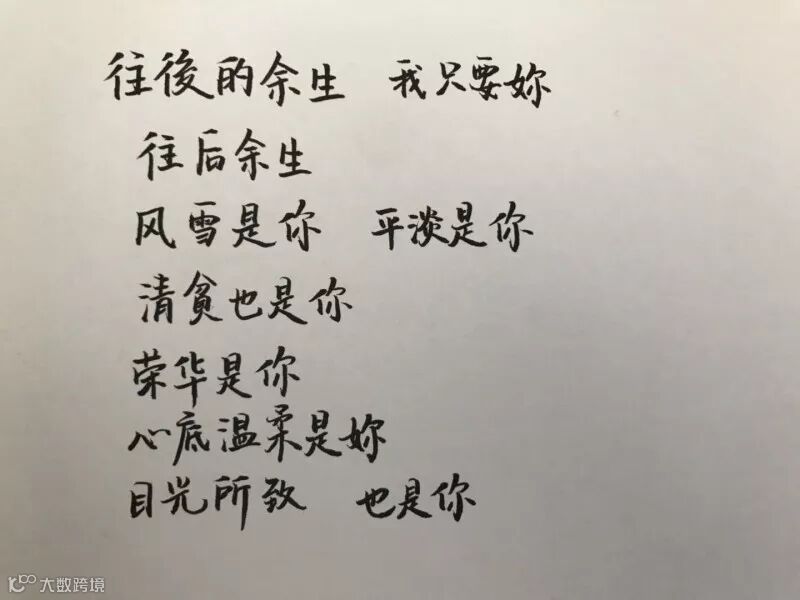 往後的余生 我只要妳
往后余生
风雪是你 平淡是你
清貧也是你
荣华是你
心底温柔是妳
目光所致 也是你
大数跨境